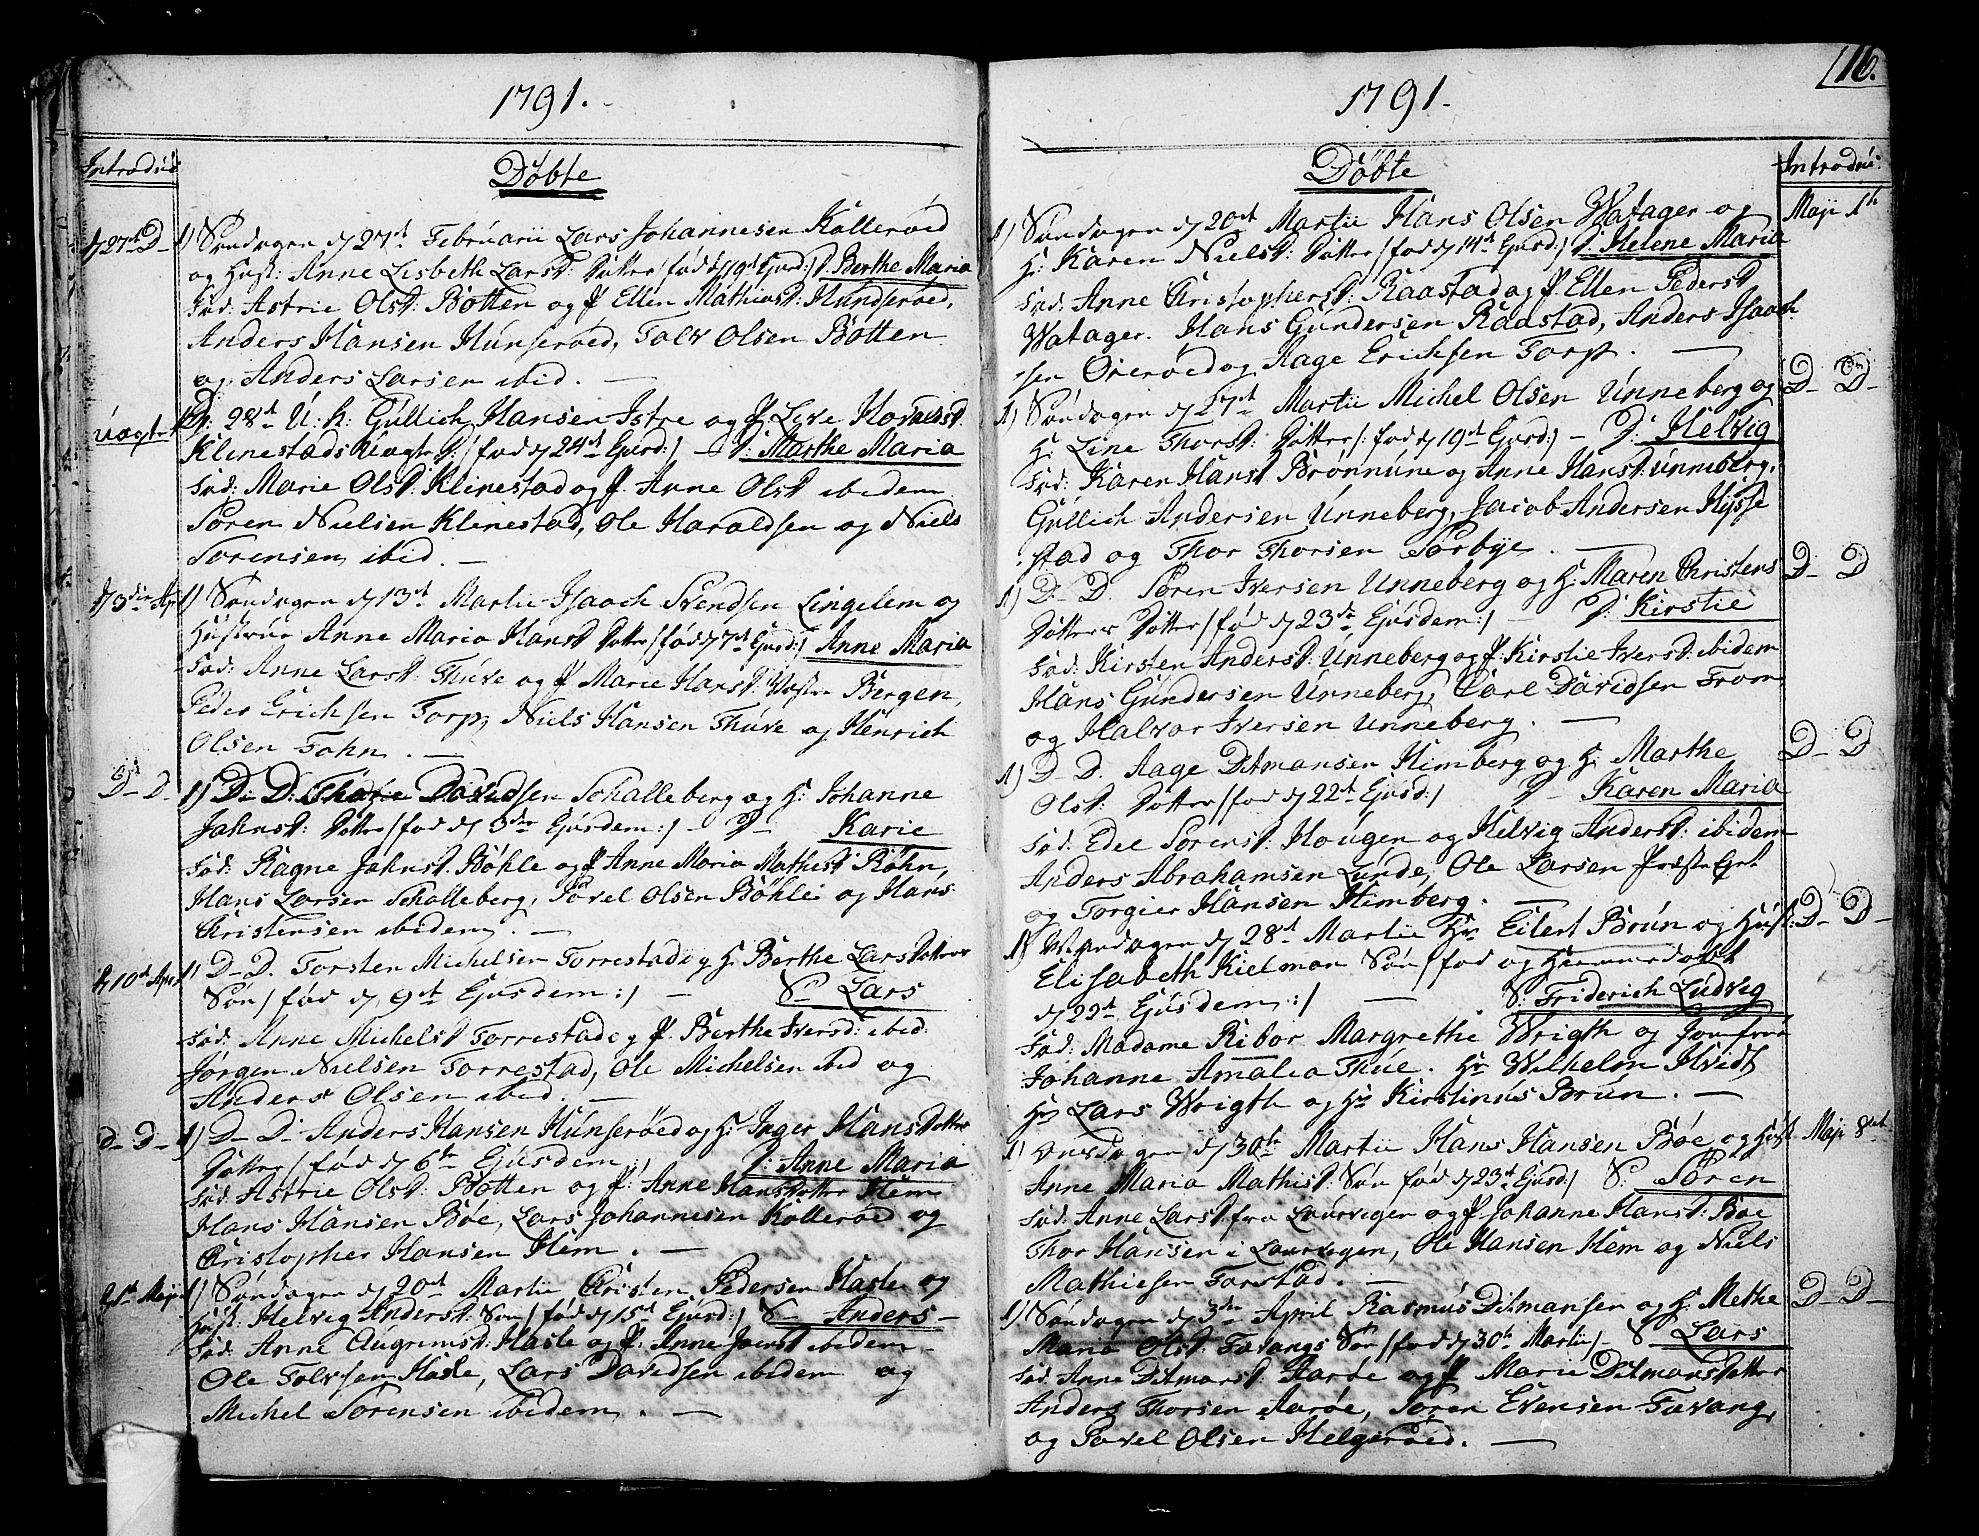 116.
1791.
Introduc:
Döbte
d 27de D-
1) Søndagen d 27de Februarii Lars Johannesen Kollerøed
og Hust: Anne Lisbeth Larsd: Dotter /: fød d 19de Ejusd:/ D. Berthe Maria
Fad: Astrie Olsd: Botten og P. Ellen Mathiasd: Hundserøed,
Anders Hansen Hunserøed, Tolv Olsen Botten
og Anders Larsen ibid. —
uægte
D: 28de U: h: Gullich Hansen Istre og P. Live Horalsd:
Klinestads Uægte D: /: fød d 24de Ejusd:/ — D: Marthe Maria
Fad: Marie Olsd: Klinestad og P. Anne Olsd ibidem
Sören Nielsen Klinestad, Ole Haraldsen og Niels
Sorensen ibid. —
d 3die Apr
1) Søndagen d 13de Martii Isaach Svendsen Lingelem og
Hustrue Anne Maria Hansd Dotter /: fød d 7de Ejusd:/ Anne Maria
Fad: Anne Larsd: Thuve og P Marie Hansd: Bergen,
Peder Erichsen Torp, Niels Hansen Thuve og Henrich
Olsen Fohn. —
D- D-
1) D. D: Davidsen Schalleberg og H: Johanne
Jahnsd: Dotter /: fød d 3die Ejusdem:/ — D- Karie
Fad: Ragne Jahnsd: Böhle og P Anne Maria Mathisd: Röhn,
Hans Larsen Schalleberg, Povel Olsen Böhle og Hans
Christensen ibidem. —
d 10de Apr
1) D- D. Torsten Michelsen Forrestad og H. Berthe Lars Dotter
Søn /: fød d 9de Ejusdem:/ — S- Lars
Fad: Anne Michelsd Forrestad og P. Berthe Iversd: ibid
Jørgen Nielsen Forrestad, Ole Michelsen ibid og
Anders Olsen ibid. —
D- D-
1) D- D- Anders Hansen Hunserøed og H: Inger Hans Dotter
Dotter /: fød d 6te Ejusdem:/ D: Anne Maria
Fad: Astrie Olsd: Botten og P. Anne Hansdotter Hem
Hans Hansen Böe, Lars Johannesen Kollerøed og
Christopher Hansen Hem. —
1ste Maji
1) Søndagen d 20de Martii Christen Pedersen Hasle og
Hust: Helvig Andersd: Søn /: fød d 15de Ejusd:/ S- Anders —
Fad: Anne Augrimsd: Hasle og P. Anne ibidem —
Ole Tolvsen Hasle, Lars Davidsen ibidem og
Michel Sörensen ibidem. —
1791.
Döbte
Introduc:
1) Søndagen d 20de Martii Hans Olsen Watager og
H: Karen Nielsd: Dotter /: fød d 14de Ejusd:/ D: Helene Maria
Fad: Anne Christophersd: Raastad og P. Ellen Pedersd
Watager. Hans Gundersen Raastad, Anders Isaach
sen Överøed og Aage Erichsen Torp. —
Maji 1te
1) Søndagen d 27de Martii Michel Olsen Unneberg og
H: Line Thorsd: Dotter /: fød d 19de Ejusd:/ — D: Helvig
Fad: Karen Hansd Brönnune og Anne Hansd: Unneberg.
Gullich Andersen Unneberg, Jacob Andersen Hysse
stad og Thor Thorsen Sörbye. —
D- D-
1) D- D. Sören Iversen Unneberg og H: Maren Christens
Dotters Dotter /: fød d 23de Ejusdem:/ — D: Kirstie
Fad: Kirsten Andersd: Unneberg og P. Kirstie Iversd: ibidem
Hans Gundersen Unneberg, Carl Davidsen From,
og Halvor Iversen Unneberg. —
D- D
1) D- D. Aage Ditmansen Himberg og H: Marthe
Olsd: Dotter /: fød d 22de Ejusd:/ D- Karen Maria
Fad: Edel Sörensd: Hougen og Helvig Andersd: ibidem
Anders Abrahamsen Lunde, Ole Larsen
og Torgier Hansen Himberg. —
D- D
1) Mandagen d 28de Martii Hr Eilert Brun og Hust:
Elisabeth Kielman Søn /: fød og Hiemmedøbt
d 22de Ejusdem:/ — S. Friderich Ludvig
Fad: Madame Ribor Margrethe Wrigth og Jomfrue
Johanne Amalia Thue. Hr Wilhelm Hvidt
Hr Lars Wrigth og Hr Kirstinus Brun. —
D- D-
1) Onsdagen d 30te Martii Hans Hansen Böe og Hust
Anne Maria Mathisd: Søn /: fød d 23de Ejusd:/ S: Sören
Fad: Anne Larsd: fra Laurvigen og P. Johanne Hansd: Boe
Thor Hansen i Laurvigen, Ole Hansen Hem og Niels
Mathiesen Forestad. —
Maji 8de
1) Søndagen d 3die April Rasmus Ditmansen og H: Mette
Maria Olsd: Tavangs Søn /: fød d 30te Martii/ S- Lars
Fad: Anne Ditmansd: Aaröe og P Marie Ditmansdotter
Anders Thorsen Aaröe, Sören Evensen Tavang,
og Povel Olsen Helgerøed. —
D- D-